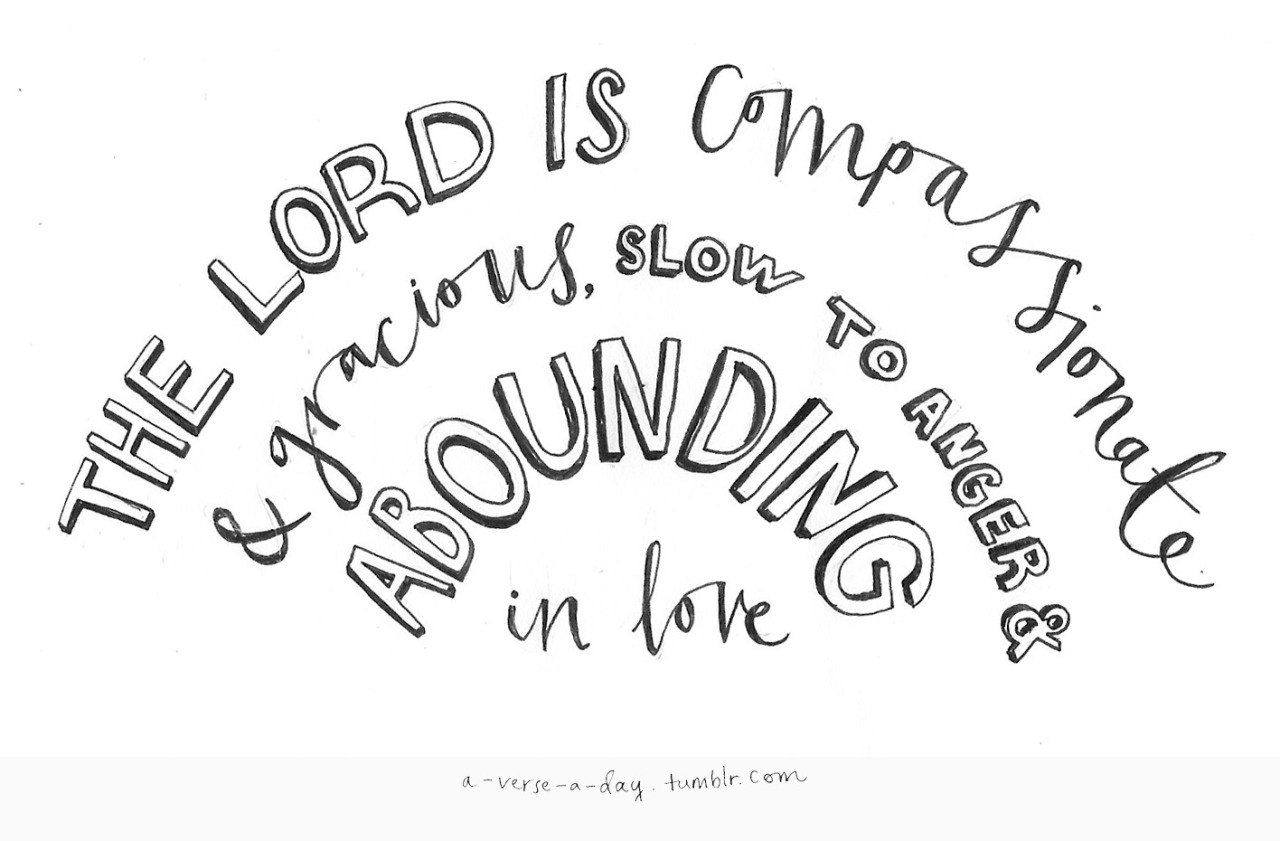 THE LORD IS compassionate
& gracious, SLOW TO ANGER &
ABOUNDING
in love
a-verse-a-day.tumblr.com